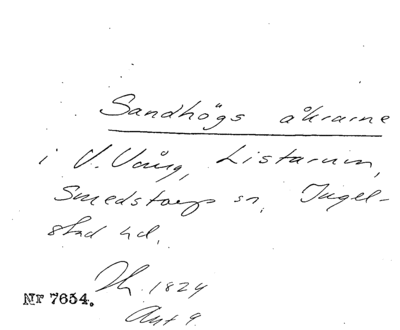 Sandhögs åkrarne
i V. Vång, Listarum,
Smedstorps sn, Ingel-
stad hd.
1824
Nr 7654.
Akt 9